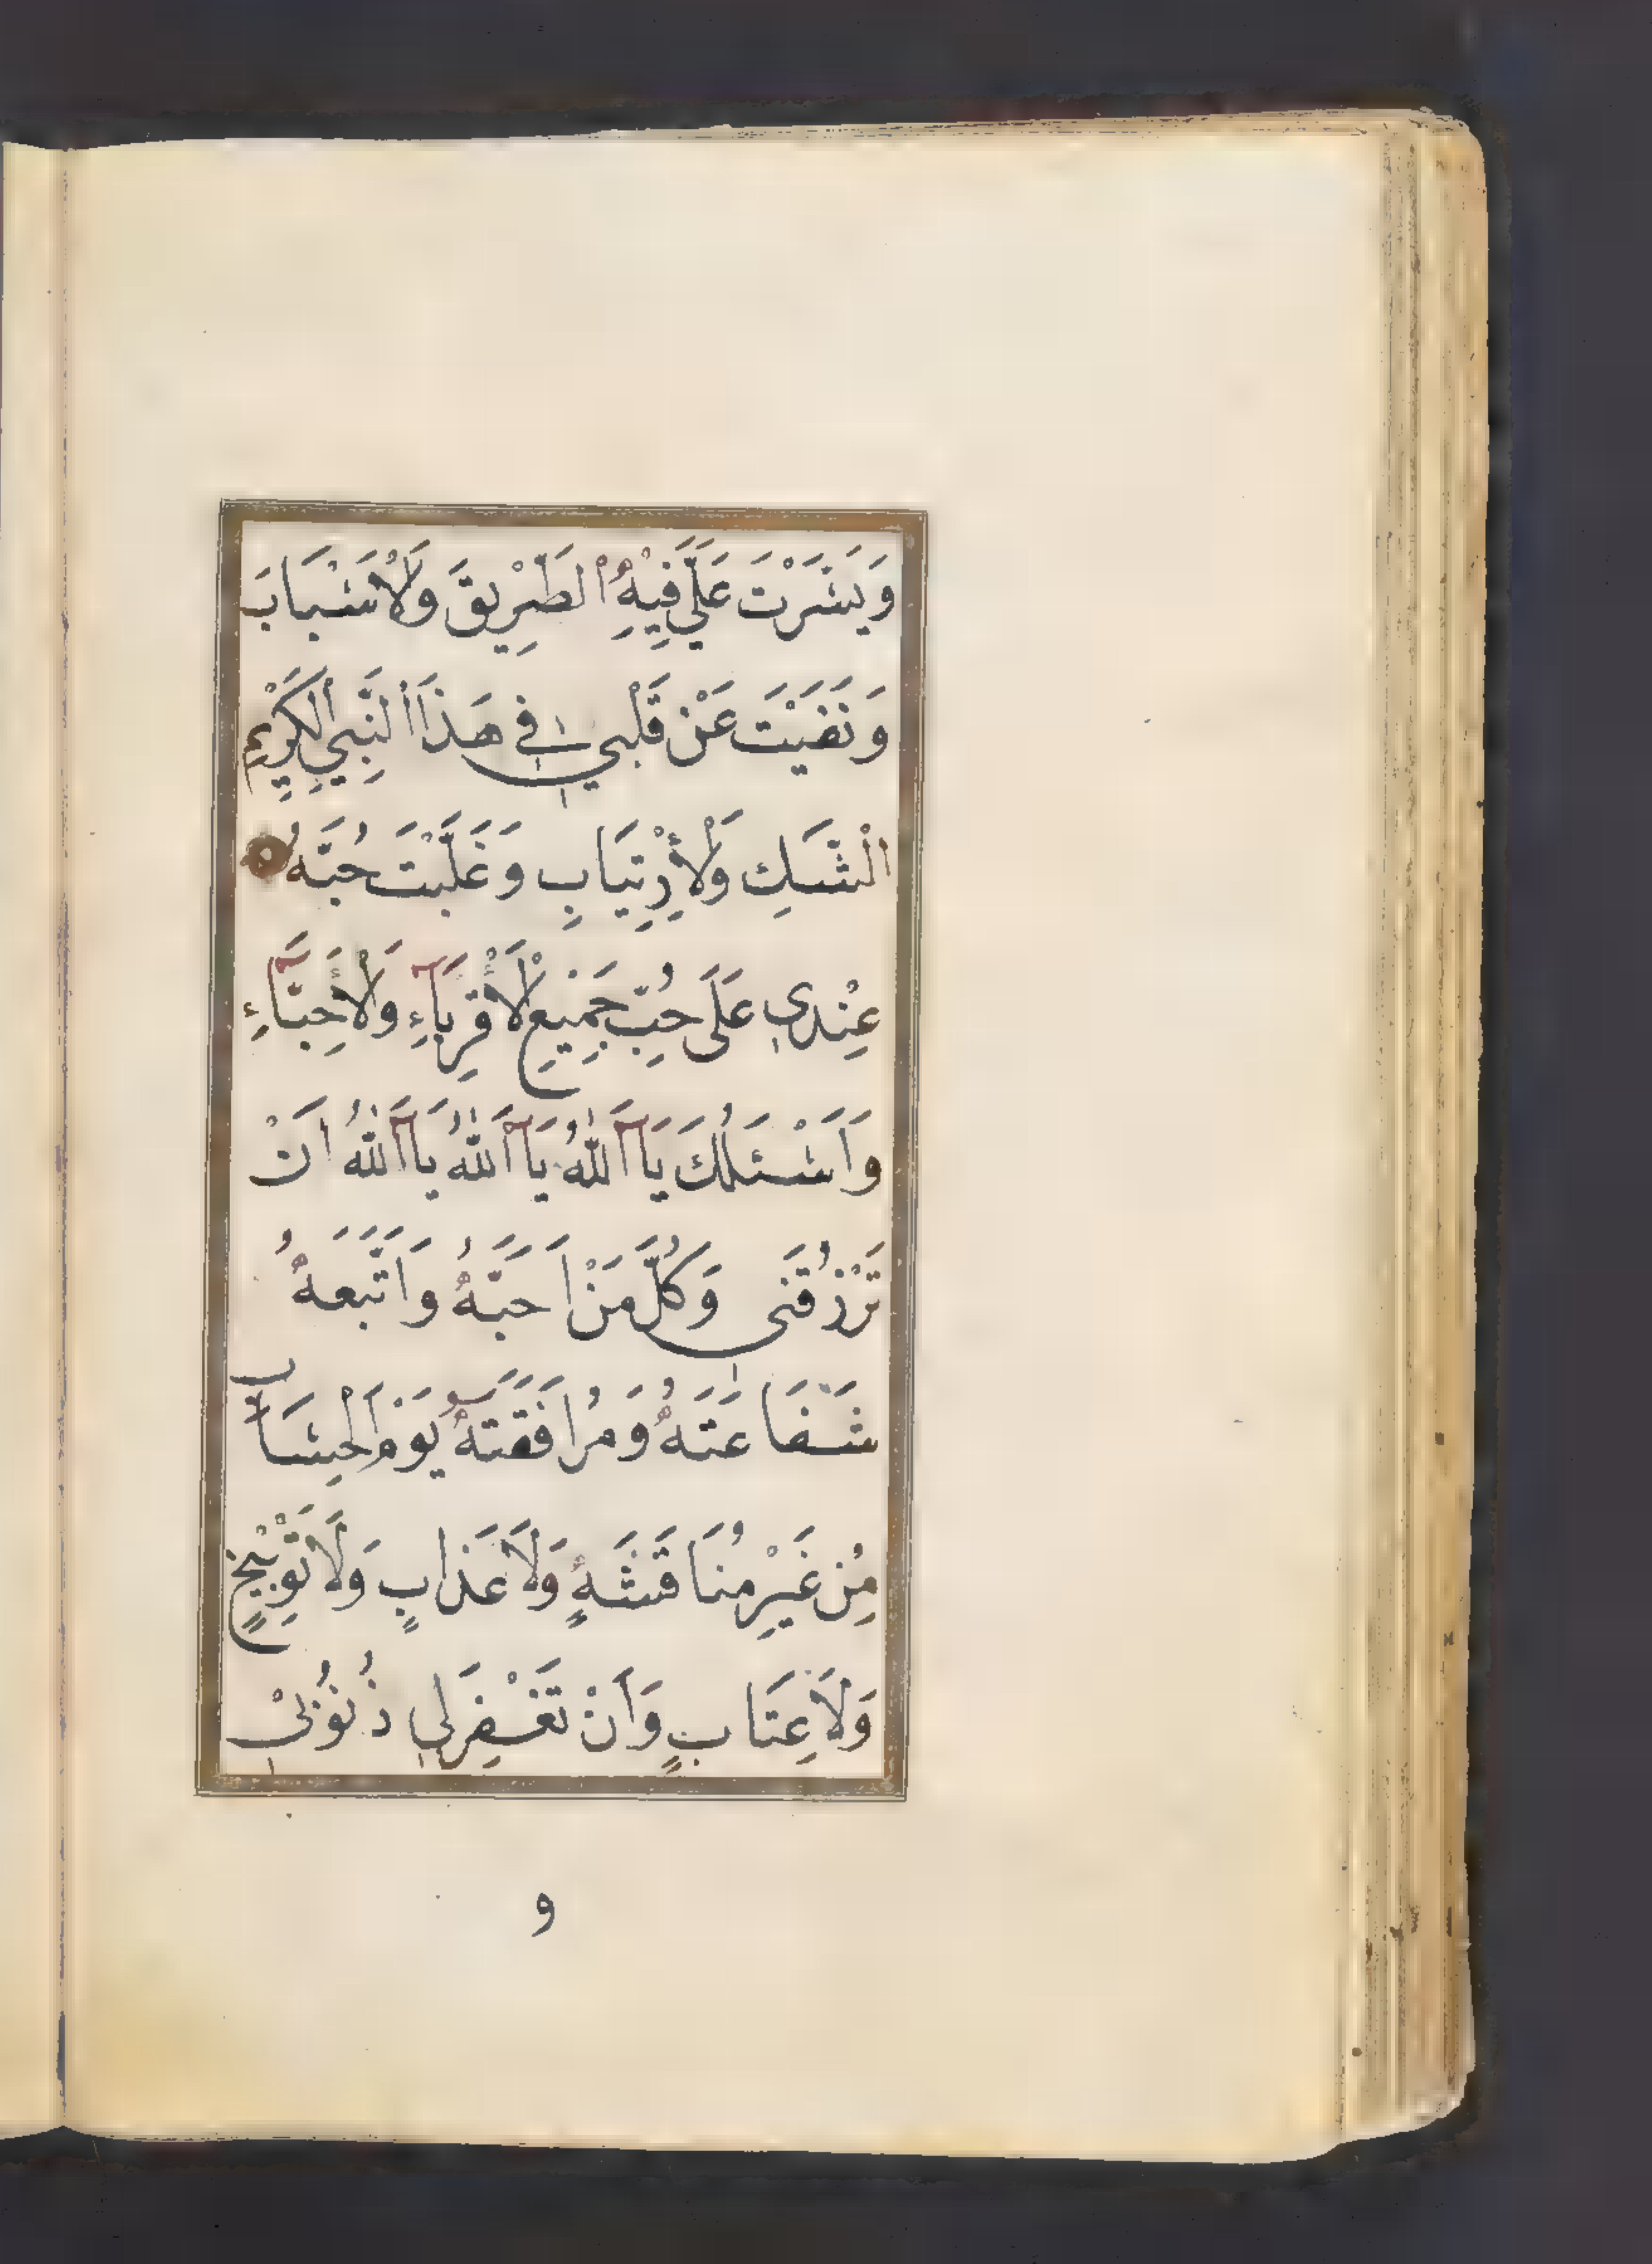 وَيَسَّرْتَ عَلَيَّ فِيهِ الطَّرِيقَ وَلْأَسْبَابَ
وَنَفَيْتَ عَنْ قَلْبِي فِي هَذَا النَّبِيِّ الْكَرِيمِ
الْشَّكِ وَلْأِرْتِيَابِ وَغَلَّبْتَ حُبَّهُ
عِنْدِي عَلَى حُبِّ جَمِيعِ لْأَقْرِبَآءِ وَلْأَحِبَّآءِ
وَأَسْئَلُكَ يَآ اَللّٰهُ يَآ اَللّٰهُ يَآ اَللّٰهُ اَنْ
تَرْزُقَنِى وَكُلَّ مَنْ اَحَبَّهُ وَاتَّبَعَهُ
شَفَاعَتَهُ وَمُرَافَقَتَهُ يَوْمَ الْحِسَابِ
مِنْ غَيْرِ مُنَاقَشَةٍ وَلَا عَذَابٍ وَلَا تَوْبِيْخٍ
وَلَا عِتَابٍ وَأَنْ تَغْفِرَ لِي ذُنُوبِىْ
و